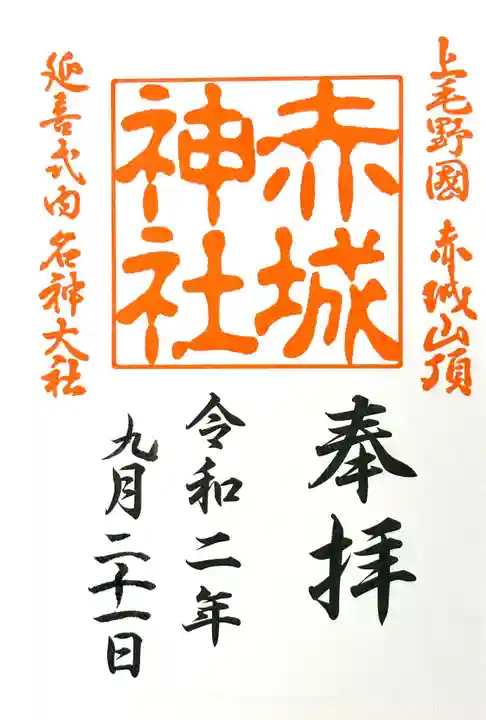 上毛野國 赤城山頂
赤城
神社
延喜式内 名神大社
奉拝
令和二年
九月二十一日